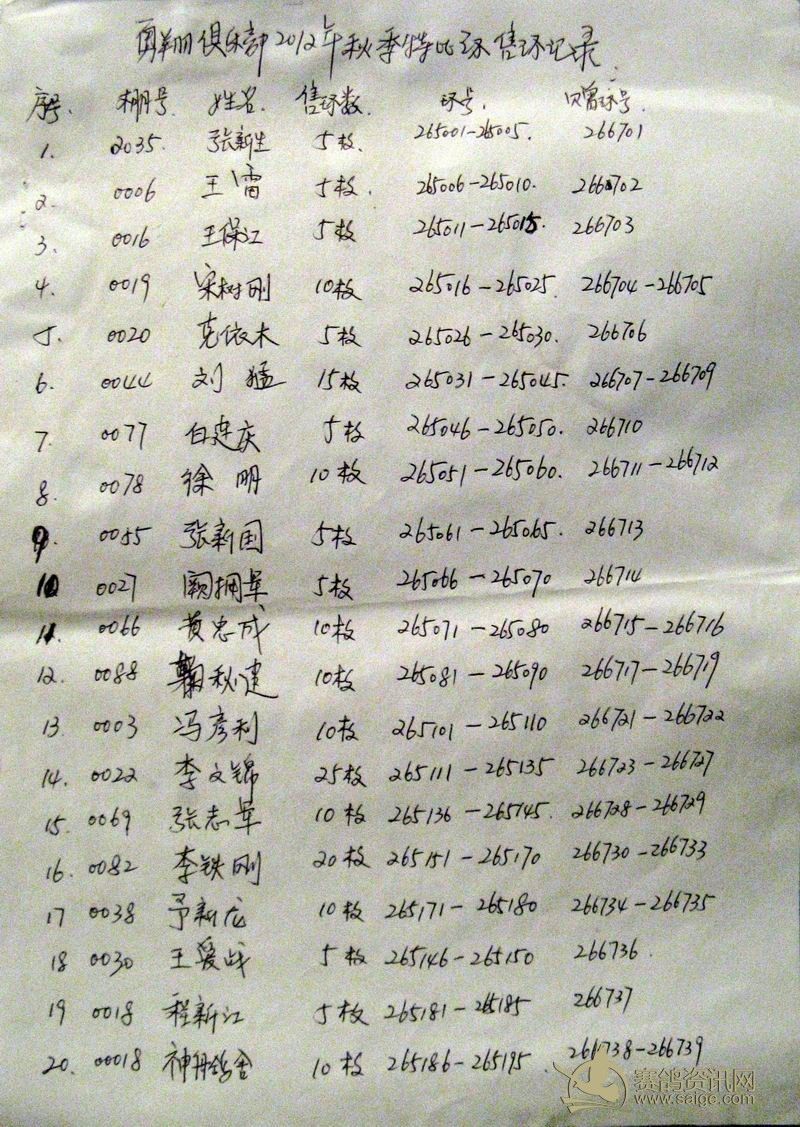 勇翔俱乐部2012年秋季特比环售环记录
序号. 棚号 姓名. 售环数. 环号. 贝曾环号.
1. 2035. 张新生 5枚 265001-265005. 266701
2. 0006 王雷 5枚. 265006-265010. 266702
3. 0016 王保江 5枚 265011-265015 266703
4. 0019 宋树刚 10枚 265016-265025. 266704-266705
5. 0020 克依木 5枚 265026-265030. 266706
6. 0044 刘猛 15枚 265031-265045. 266707-266709
7. 0077 白连庆 5枚 265046-265050. 266710
8. 0078 徐明 10枚 265051-265060. 266711-266712
9. 0055 张新国 5枚 265061-265065. 266713
10 0027 阚拥军 5枚 265066-265070 266714
11. 0066 黄忠成 10枚 265071-265080 266715-266716
12. 0088 鞠秋建 10枚 265081-265090 266717-266719
13. 0003 冯彦利 10枚 265101-265110 266721-266722
14. 0022 李文锦 25枚 265111-265135 266723-266727
15. 0069 张志军 10枚 265136-265145. 266728-266729
16. 0082 李铁刚 20枚 265151-265170 266730-266733
17 0038 予新龙 10枚 265171-265180 266734-266735
18 0030 王爱战 5枚 265146-265150 266736.
19 0018 程新江 5枚 265181-265185 266737
20. 00018 神舟鸽舍 10枚 265186-265195. 266738-266739
赛鸽资讯网
www.saige.com